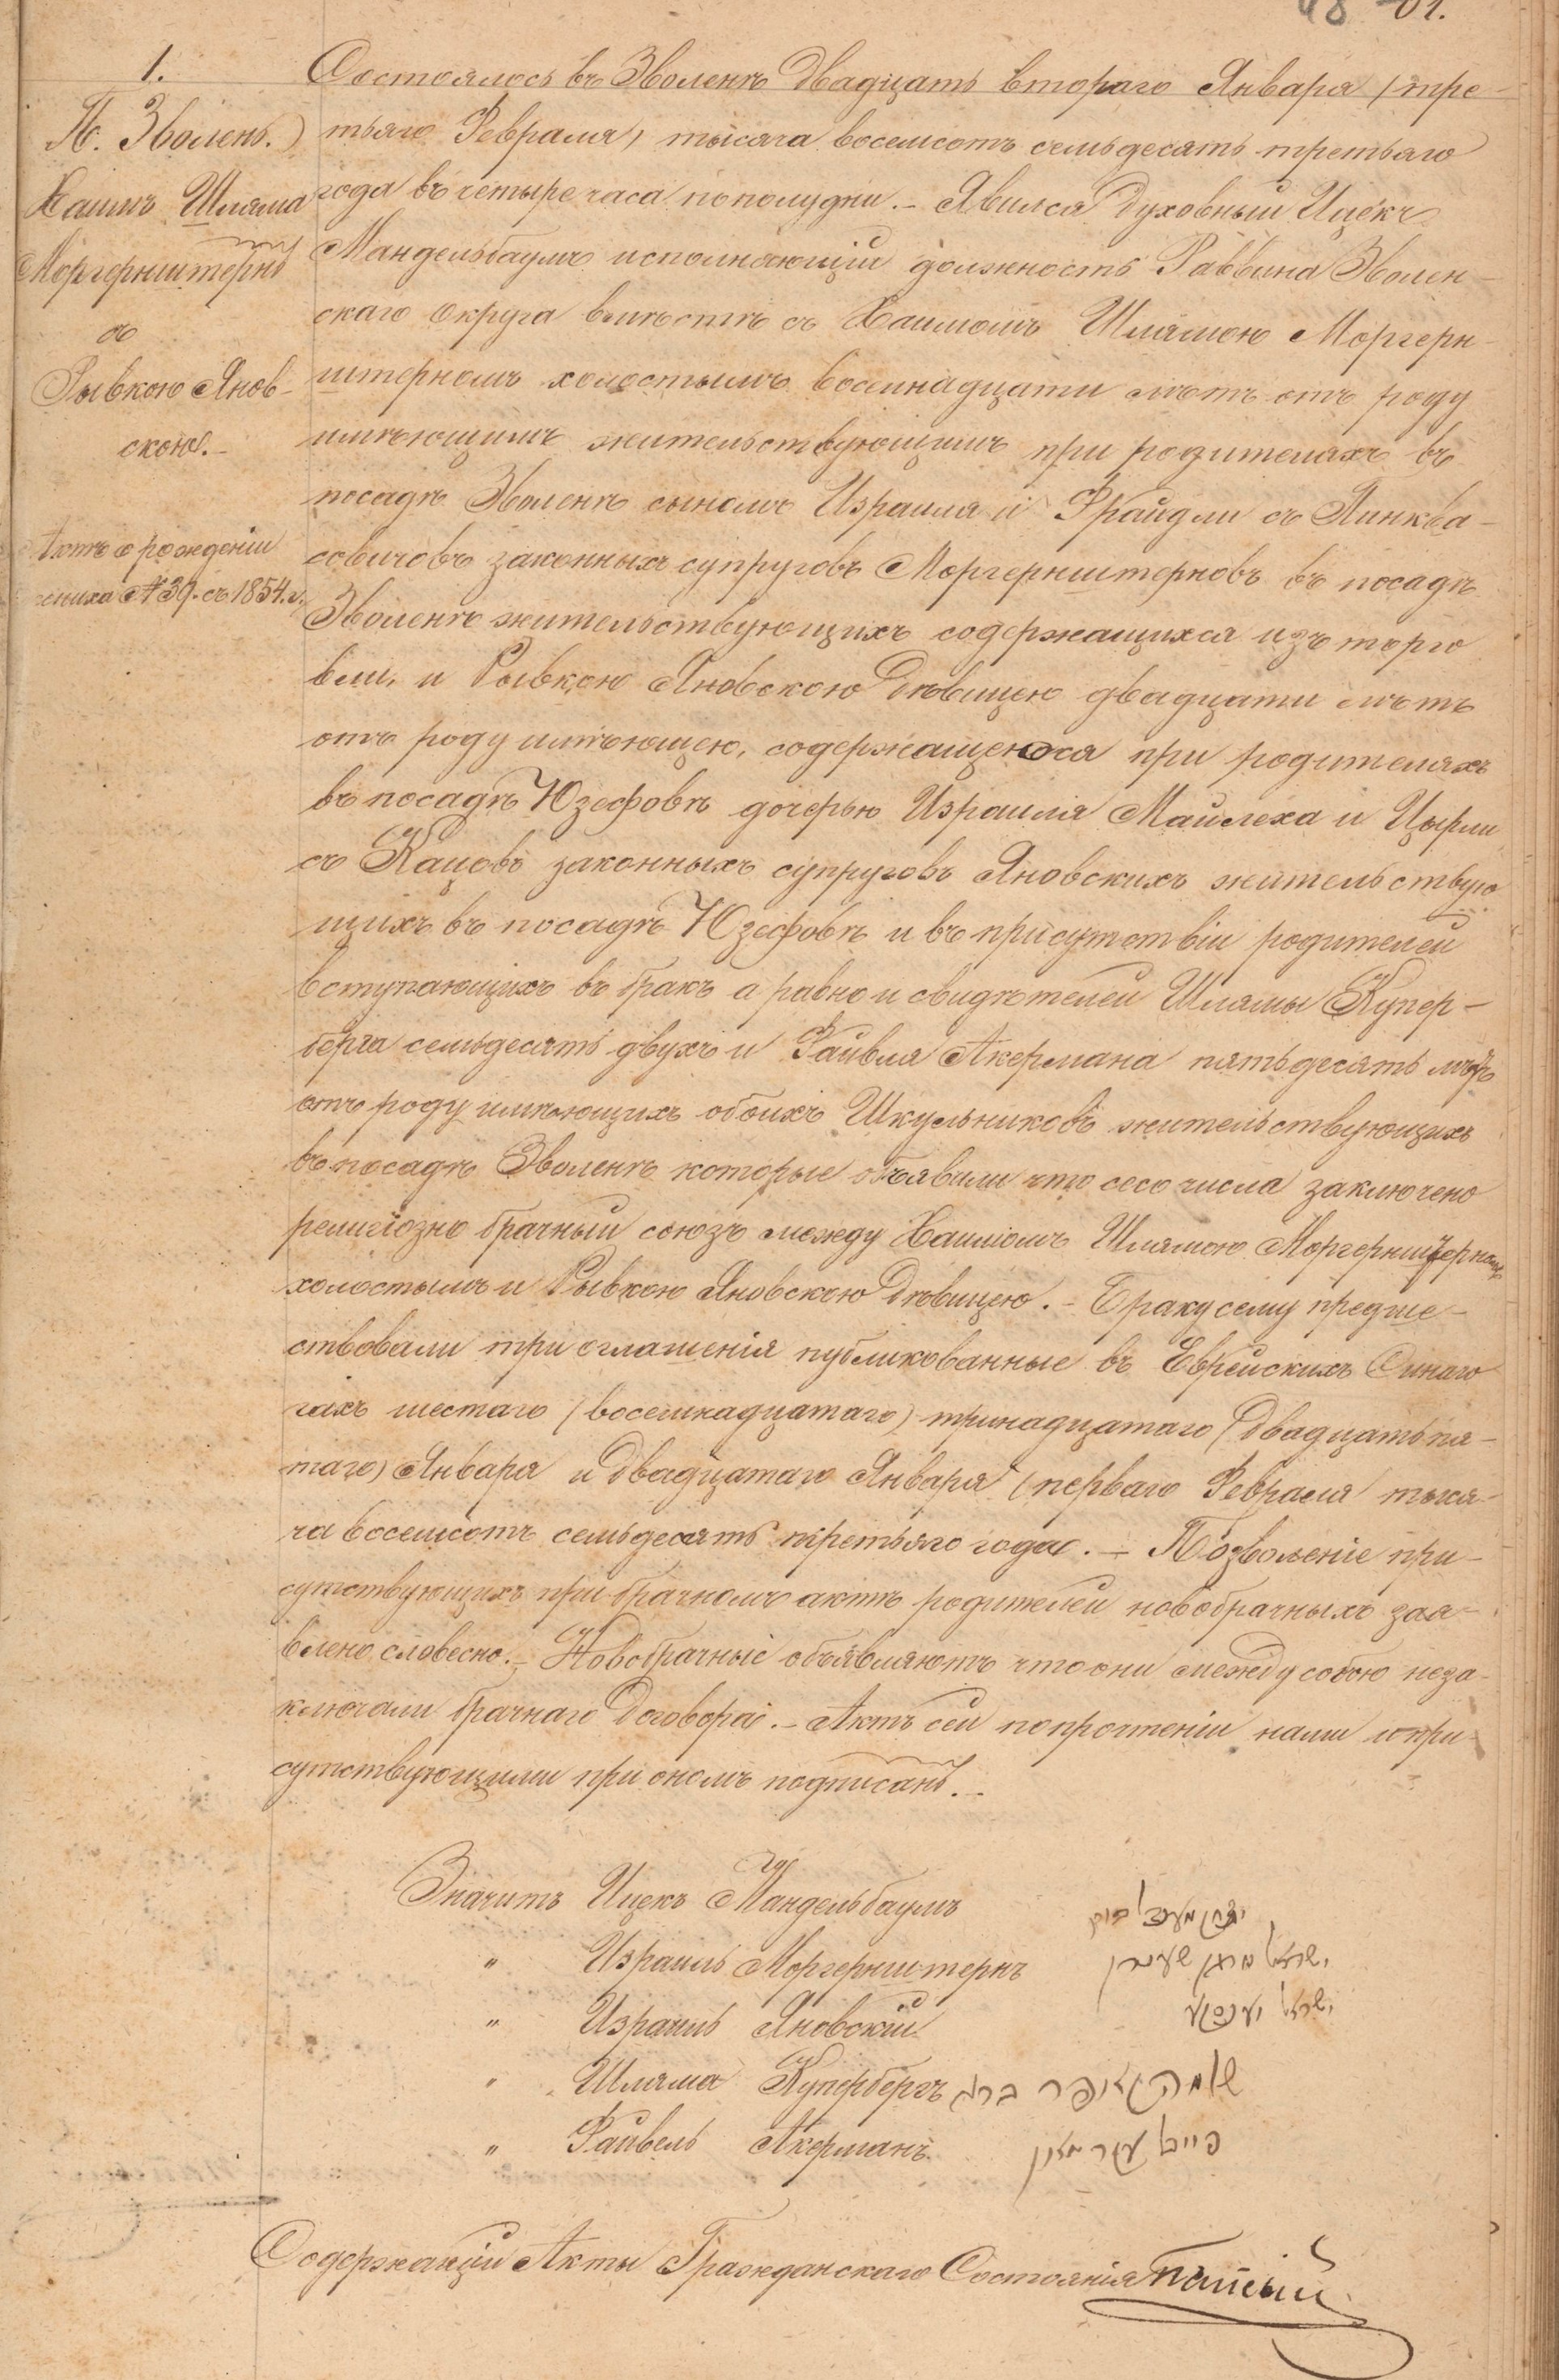 1.
П. Зволень.
Хаимъ Шляма
Моргерштернъ
съ
Рывкою Янов-
скою.-
Актъ о рожденіи
жениха № 39. съ 1854. г.
Состоялось въ Зволенѣ двадцать втораго Января (тре-
тьяго Февраля) тысяча восемсотъ семьдесятъ третьяго
года въ четыре часа пополудни. - Явился Духовный Ицекъ
Мандельбаумъ исполняющій должность Раввина Зволен-
скаго округа вмѣстѣ съ Хаимомъ Шлямою Моргерн-
штерномъ холостымъ восемнадцати лѣтъ отъ роду
имѣющимъ жительствующимъ при родителяхъ въ
посадѣ Зволенѣ сыномъ Израиля и Фрайдли съ Пинква-
совичовъ законныхъ супруговъ Моргернштерновъ въ посадѣ
Зволенѣ жительствующихъ содержащихся изъ торго
вли. и Рывкою Яновскою Дѣвицею двадцати лѣтъ
отъ роду имѣющею, содержащеюся при родителяхъ
въ посадѣ Юзефовѣ дочерью Израиля Майлеха и Цырли
съ Кацовъ законныхъ супруговъ Яновскихъ жительствую
щихъ въ посадѣ Юзефовѣ и въ присутствіи родителей
вступающихъ въ бракъ а равно и свидѣтелей Шлямы Купер-
берга семьдесятъ двухъ и Файвля Акермана пятьдесятъ лѣтъ
отъ роду имѣющихъ обоихъ Шкульниковъ жительствующихъ
въ посадѣ Зволенѣ которые объявили что сего числа заключено
религіозно брачный союзъ между Хаимомъ Шлямою Моргернштерномъ
холостымъ и Рывкою Яновскою Дѣвицею. - Браку сему предше-
ствовали три оглашенія публикованные въ Еврейскихъ Синаго
гахъ шестаго (восемнадцатаго) тринадцатаго (двадцать пя-
таго) Января и двадцатаго Января (перваго Февраля тыся-
ча восемсотъ семьдесятъ третьяго года. - Позволеніе при-
сутствующихъ при брачномъ актѣ родителей новобрачныхъ зая-
влено словесно. - Новобрачные объявляютъ что они между собою неза-
ключали брачнаго договора. - Актъ сей по прочтеніи нами и при-
сутствующими при ономъ подписанъ. -
Значитъ Ицекъ Мандельбаумъ
" Израиль Моргернштернъ ישראל מרגן שטערן
" Израиль Яновскій ישראל
" Шляма Купербергъ שלמה קופר ברג
" Файвель Акерманъ פייבל אקר מאן
Содержащій Акты Гражданскаго Состоянія